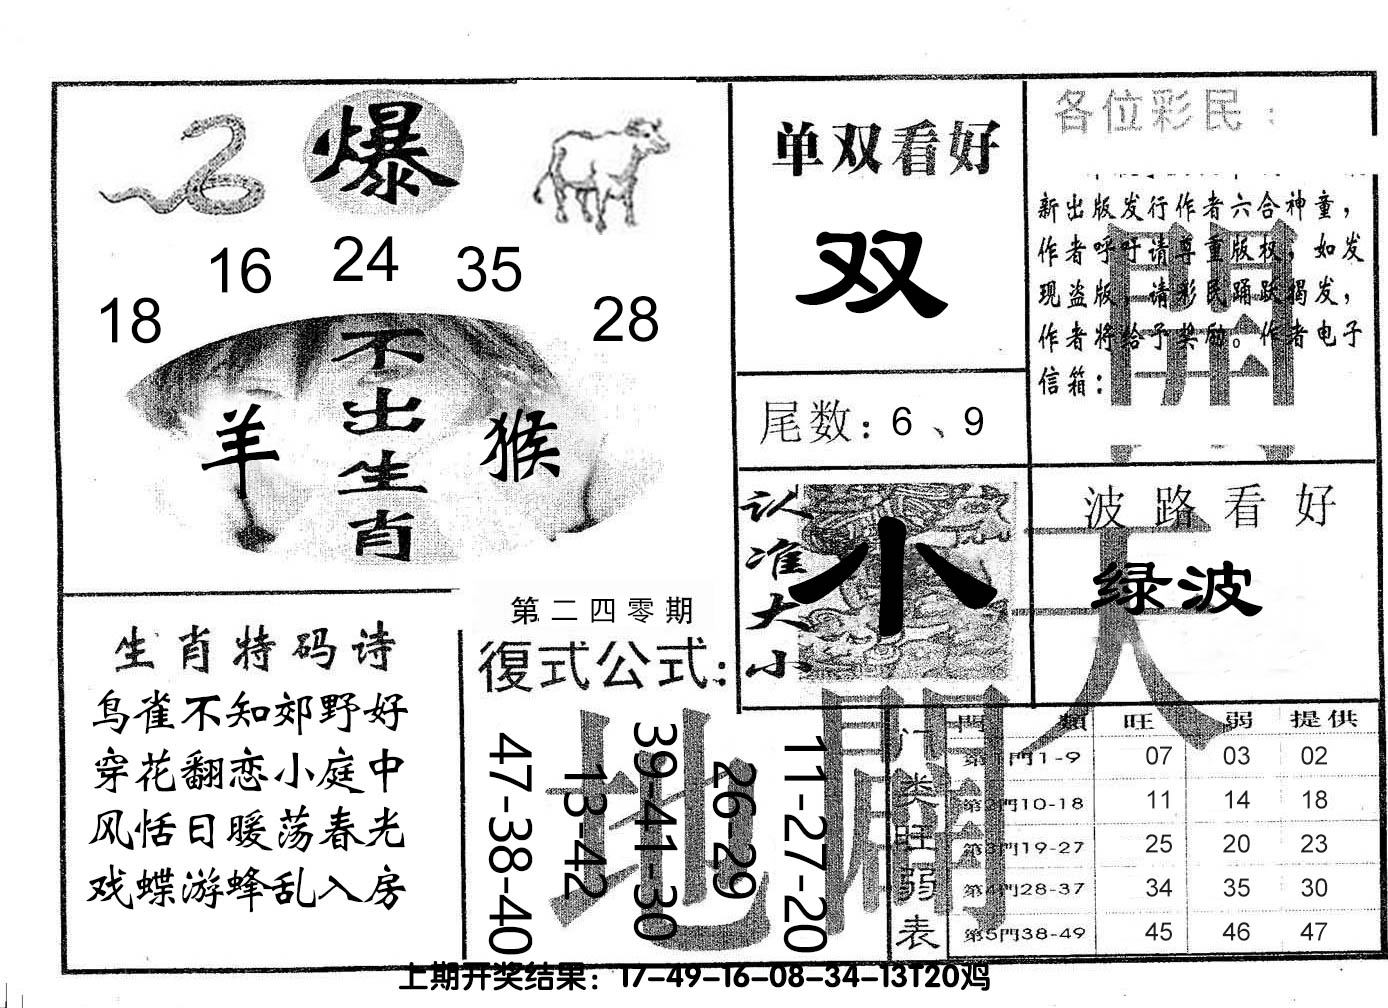 爆
18 16 24 35 28
不出生肖
羊 猴
单双看好
双
尾数：6、9
各位彩民：
新出版发行作者六合神童，
作者呼吁请尊重版权，如发
现盗版，请彩民踊跃揭发，
作者将给予奖励。作者电子
信箱：
認准大小
小
波路看好
绿波
天
開
地
闢
生肖特码诗
鸟雀不知郊野好
穿花翻恋小庭中
风恬日暖荡春光
戏蝶游蜂乱入房
第二四零期
復式公式：
47-38-40
13-42
39-41-30
26-29
11-27-20
门类旺弱表
門類 旺 弱 提供
第1門1-9 07 03 02
第2門10-18 11 14 18
第3門19-27 25 20 23
第4門28-37 34 35 30
第5門38-49 45 46 47
上期开奖结果：17-49-16-08-34-13T20鸡